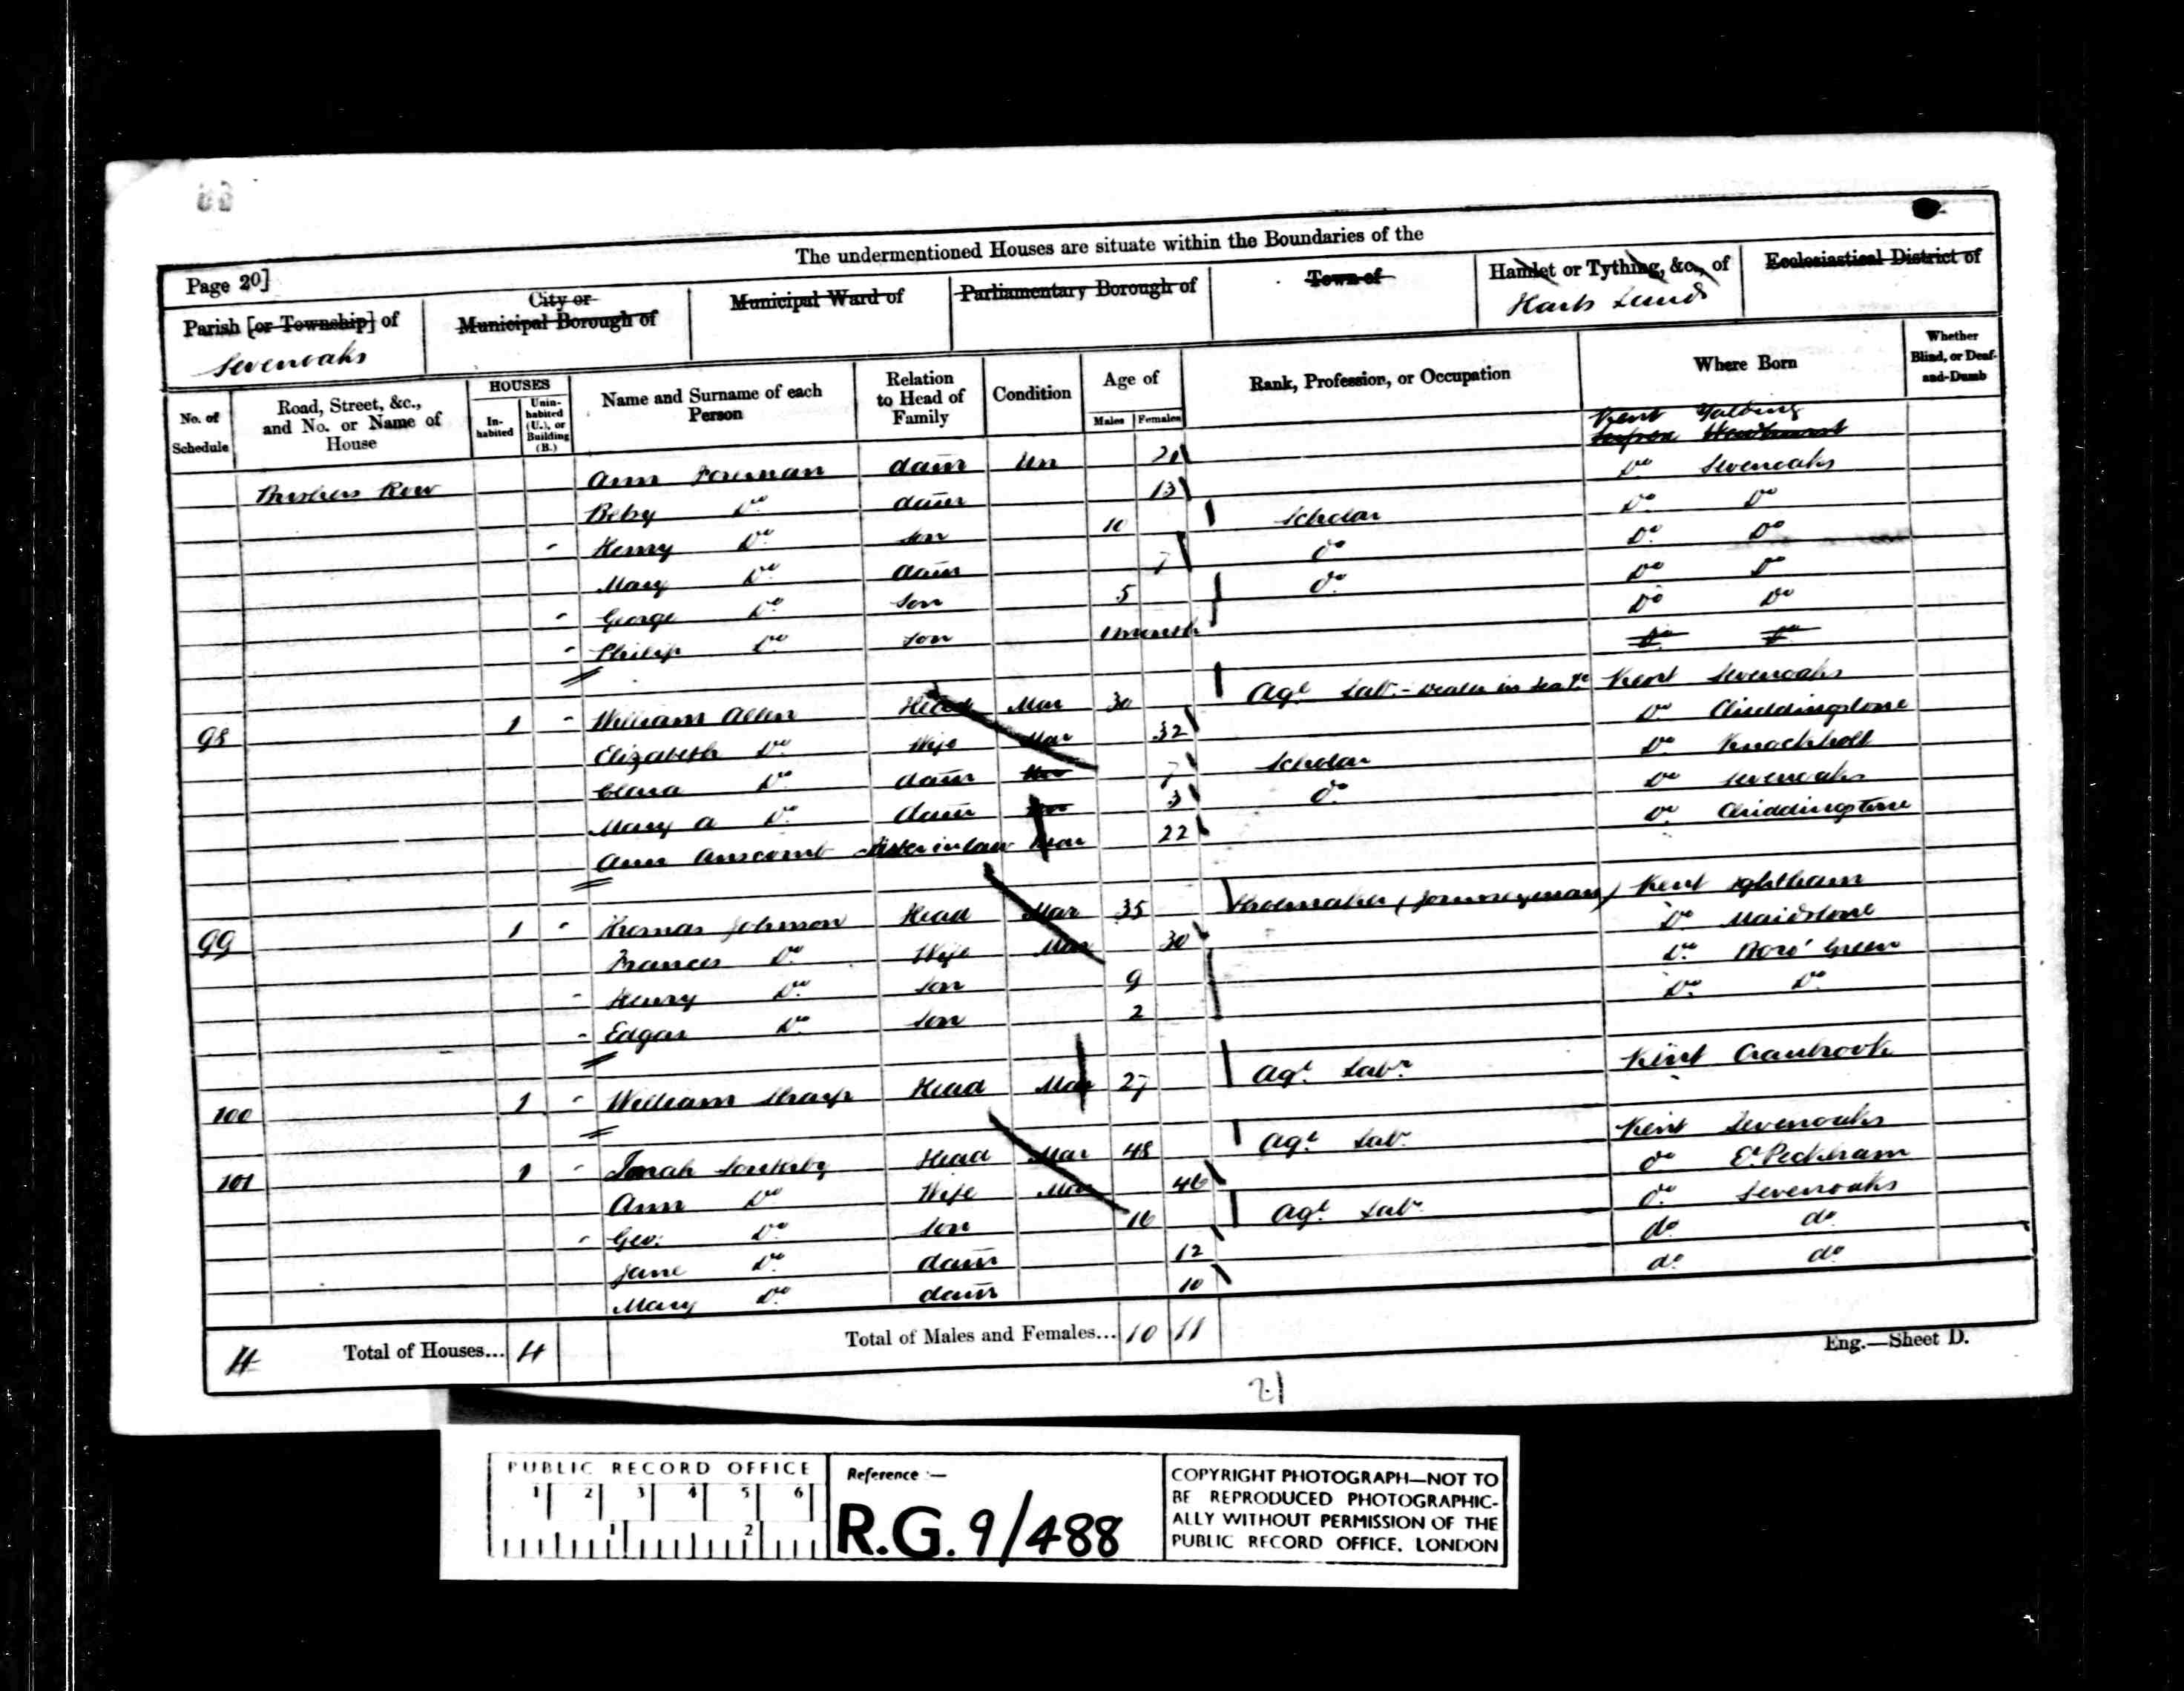 The undermentioned Houses are situate within the Boundaries of the
Page 20]
Parish [or Township] of
Sevenoaks
City or
Municipal Borough of
Municipal Ward of
Parliamentary Borough of
Town of
Hamlet or Tything, &c., of
Ecclesiastical District of
No. of Schedule
Road, Street, &c., and No. or Name of House
HOUSES
In-habited
Unin-habited (U.), or Building (B.)
Name and Surname of each Person
Relation to Head of Family
Condition
Age of
Males Females
Rank, Profession, or Occupation
Where Born
Whether Blind, or Deaf-and-Dumb
Kent Yalding
Row Ann Foreman daur Un
Betsy Do daur 13 Do Sevenoaks
Henry Do son 10 Scholar Do Do
Mary Do daur 7 Do Do Do
George Do son 5 Do Do Do
Philip Do son 1 month Do Do
Do Do
98 1 William Allen Head Mar 30 Agl Labr - Dealer in Kent Sevenoaks
Elizabeth Do Wife Mar 32 Do Chiddingstone
Clara Do daur Un 7 Scholar Do Knockholt
Mary A Do daur Un 3 Do Do Sevenoaks
Ann Anscomb Sister in law Mar 22 Do Chiddingstone
99 1 Thomas Johnson Head Mar 35 Shoemaker (journeyman) Kent Ightham
Frances Do Wife Mar 30 Do Maidstone
Henry Do son 9 Do Boro' Green
Edgar Do son 2 Do Do
100 1 William Sharp Head Mar 27 Agl Labr Kent Cranbrook
101 1 Head Mar 48 Agl Labr Kent Sevenoaks
Ann Do Wife Mar 46 Do E. Peckham
Geo: Do son 16 Agl Labr Do Sevenoaks
Jane Do daur 12 do do
Mary Do daur 10 do do
4 Total of Houses... 4 Total of Males and Females... 10 11
Eng.—Sheet D.
21
PUBLIC RECORD OFFICE
1 2 3 4 5 6
1 2
Reference :—
R.G. 9/488
COPYRIGHT PHOTOGRAPH—NOT TO
BE REPRODUCED PHOTOGRAPHIC-
ALLY WITHOUT PERMISSION OF THE
PUBLIC RECORD OFFICE, LONDON